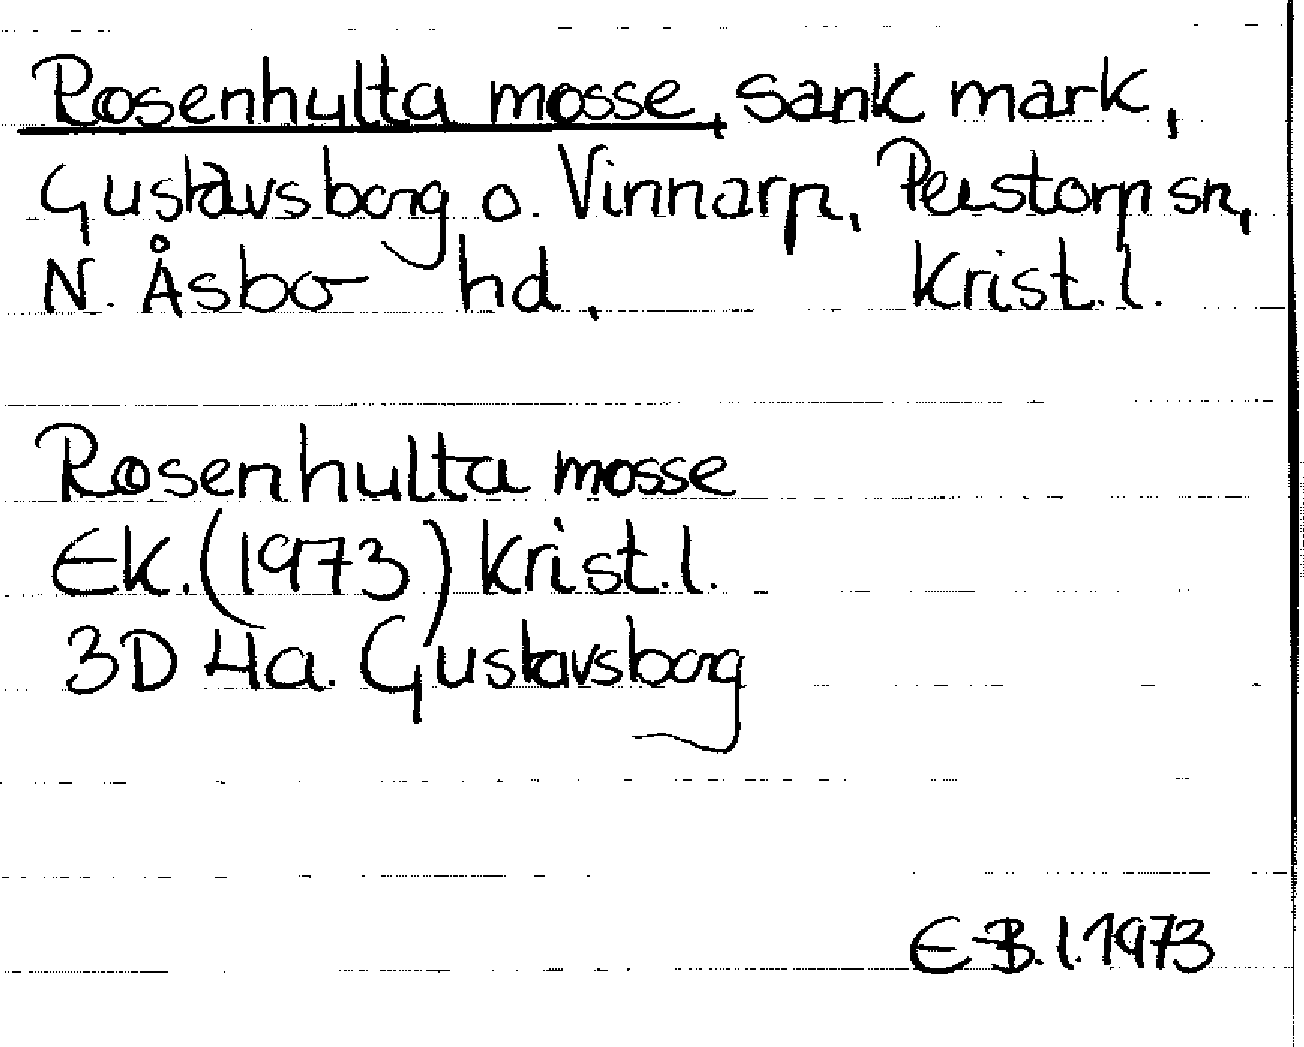 Rosenhulta mosse, sank mark,
Gustavsborg o. Vinnarp, Perstorp sn,
N. Åsbo hd, Krist. l.
Rosenhulta mosse
Ek. (1973) Krist. l.
3D 4a. Gustavsborg
E B. l. 1973